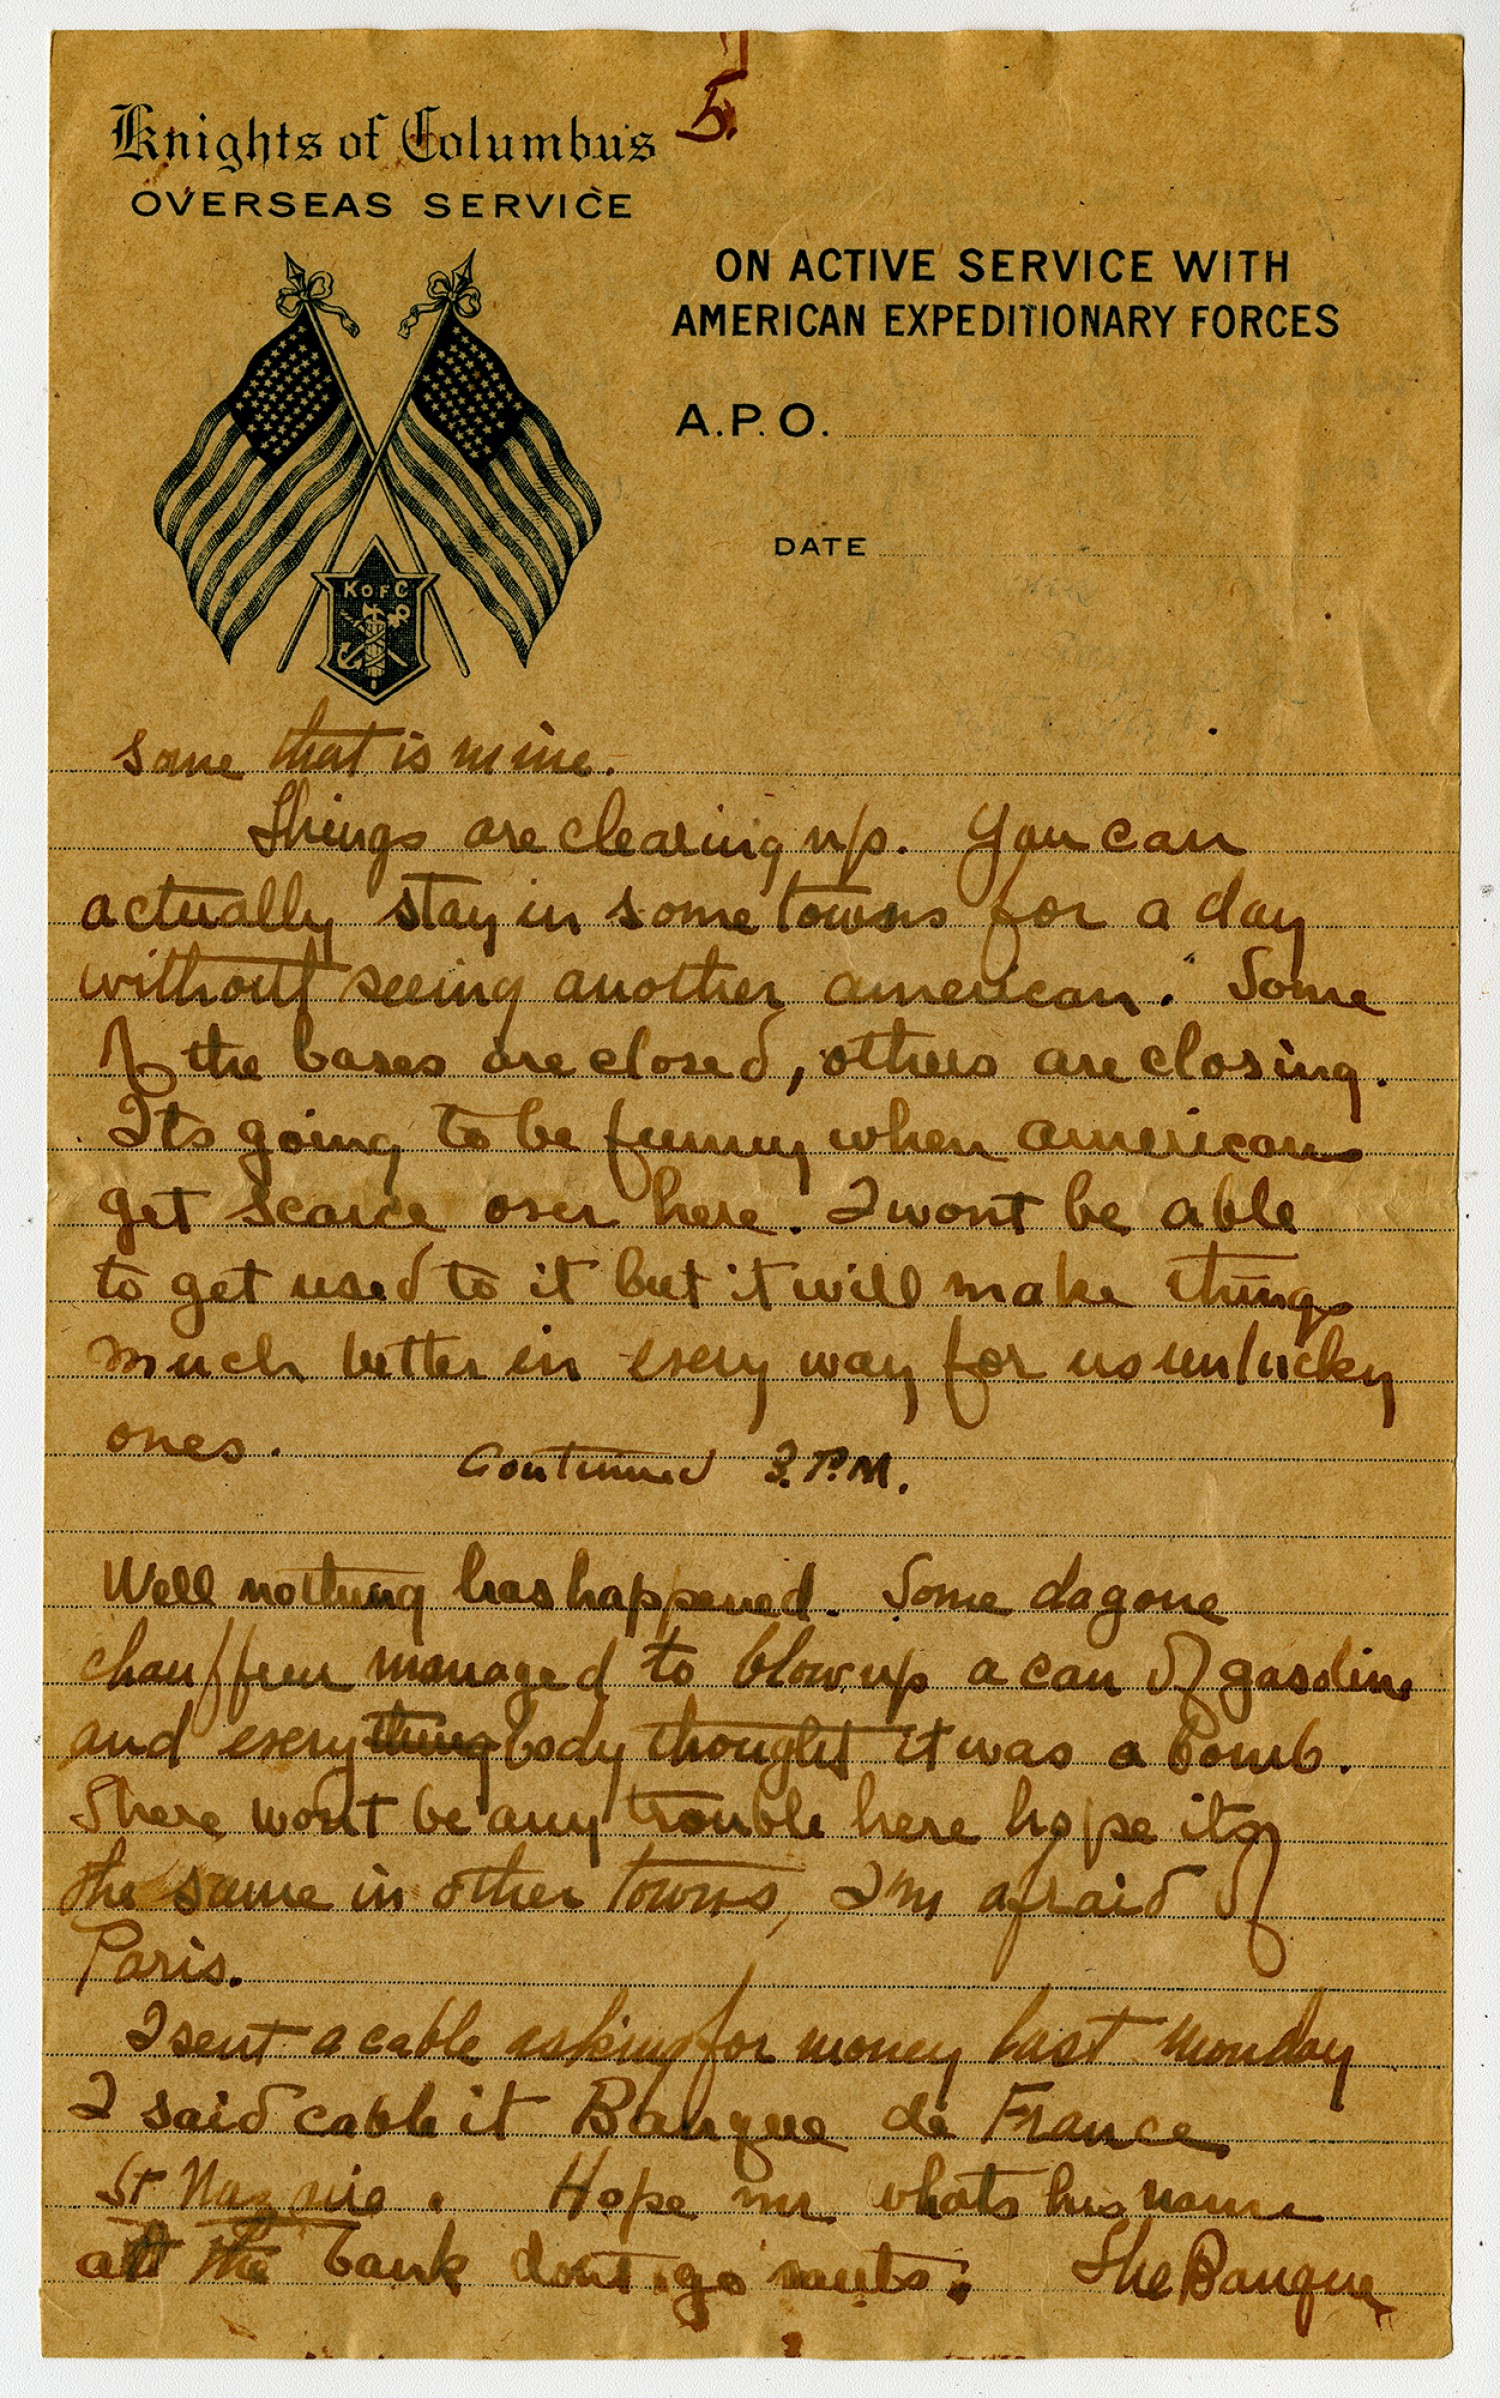 5.
Knights of Columbus
OVERSEAS SERVICE
ON ACTIVE SERVICE WITH
AMERICAN EXPEDITIONARY FORCES
A.P.O.
DATE
K OF C
some that is mine.
Things are clearing up. You can
actually stay in some towns for a day
without seeing another american. Some
of the bases are closed, others are closing.
Its going to be funny when americans
get scarce over here. I wont be able
to get used to it but it will make things
much better in every way for us unlucky
ones.
Continued 3.P.M.
Well nothing has happened. Some dagone
chauffeur managed to blow up a can of gasoline
and everything body thought it was a bomb.
There wont be any trouble here hope its
the same in other towns, I'm afraid of
Paris.
I sent a cable asking for money last Monday
I said cable it Banque de France
St Nazaire. Hope mr whats his name
at the bank dont go nuts. The Banque